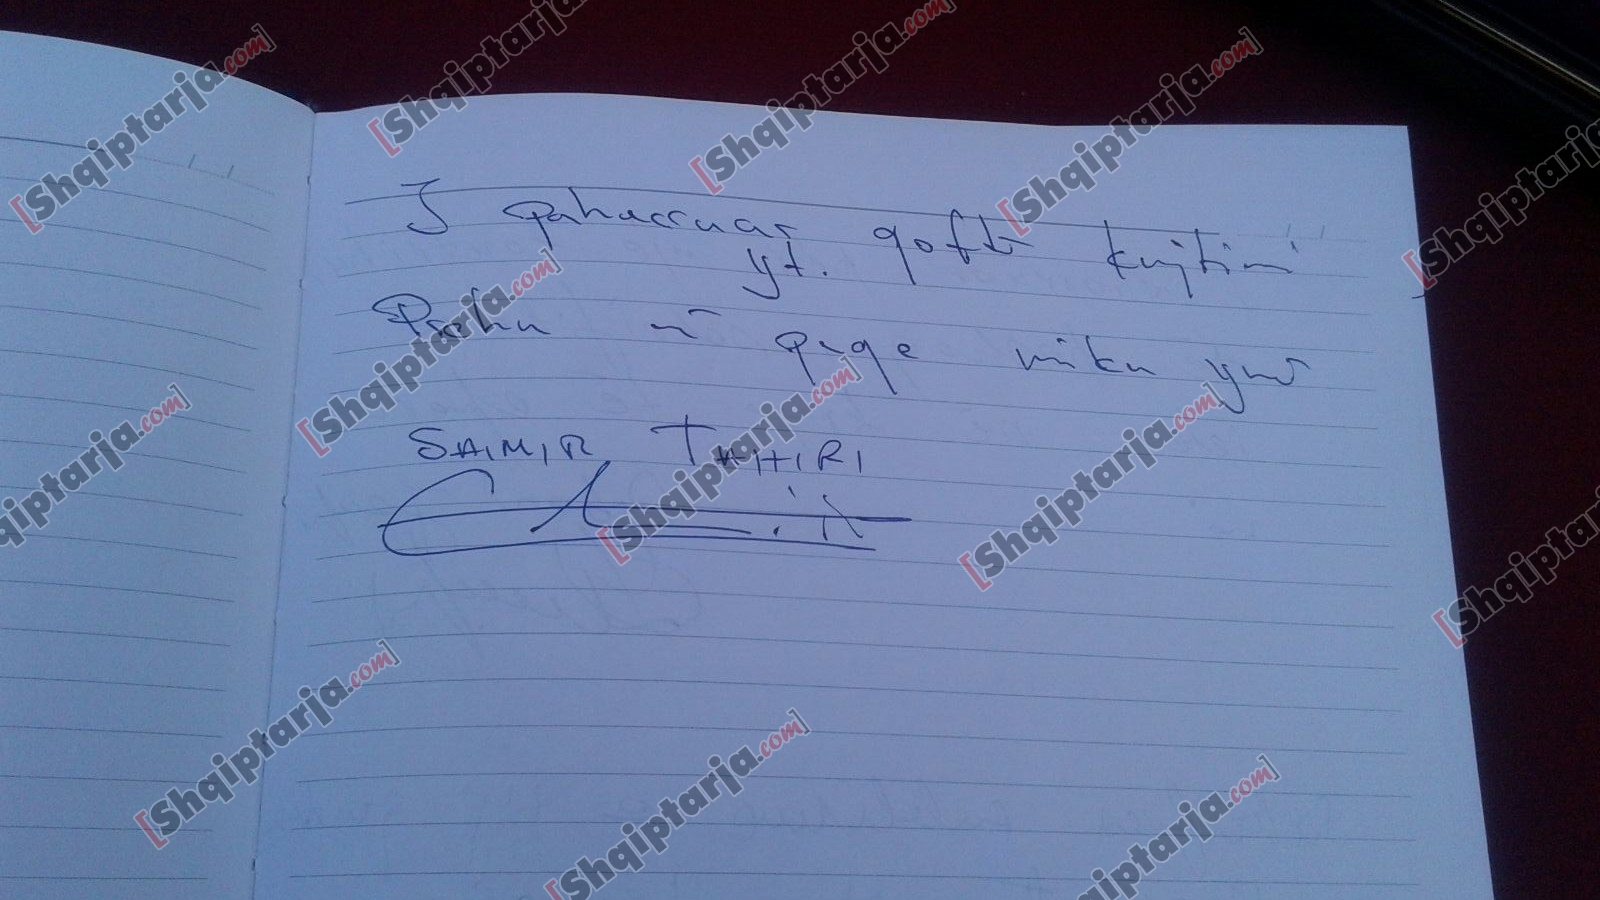 I paharruar qoftë kujtimi
yt.
Prehu në paqe miku ynë
SAIMIR TAHIRI
[Shqiptarja.com]
[Shqiptarja.com]
[Shqiptarja.com]
[Shqiptarja.com]
[Shqiptarja.com]
[Shqiptarja.com]
[Shqiptarja.com]
[Shqiptarja.com]
[Shqiptarja.com]
[Shqiptarja.com]
[Shqiptarja.com]
[Shqiptarja.com]
[Shqiptarja.com]
[Shqiptarja.com]